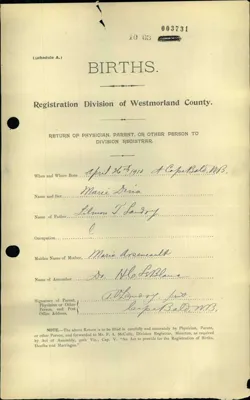 003731
(Schedule A.)
BIRTHS.
Registration Division of Westmorland County.
RETURN OF PHYSICIAN, PARENT, OR OTHER PERSON TO
DIVISION REGISTRAR.
When and Where Born April 26th 1910 at Cape Bald, N.B.
Name and Sex Marie
Name of Father T Landry
Occupation
Maiden Name of Mother Marie Arsenault
Name of Attendant Dr
Signature of Parent,
Physician or Other
Person, and Post
Office Address
Cape Bald, N.B.
NOTE.—The above Return is to be filled in carefully and accurately by Physician, Parent,
or other Person, and forwarded to Division Registrar, Moncton, as required
by Act of Assembly,
Deaths and Marriages."